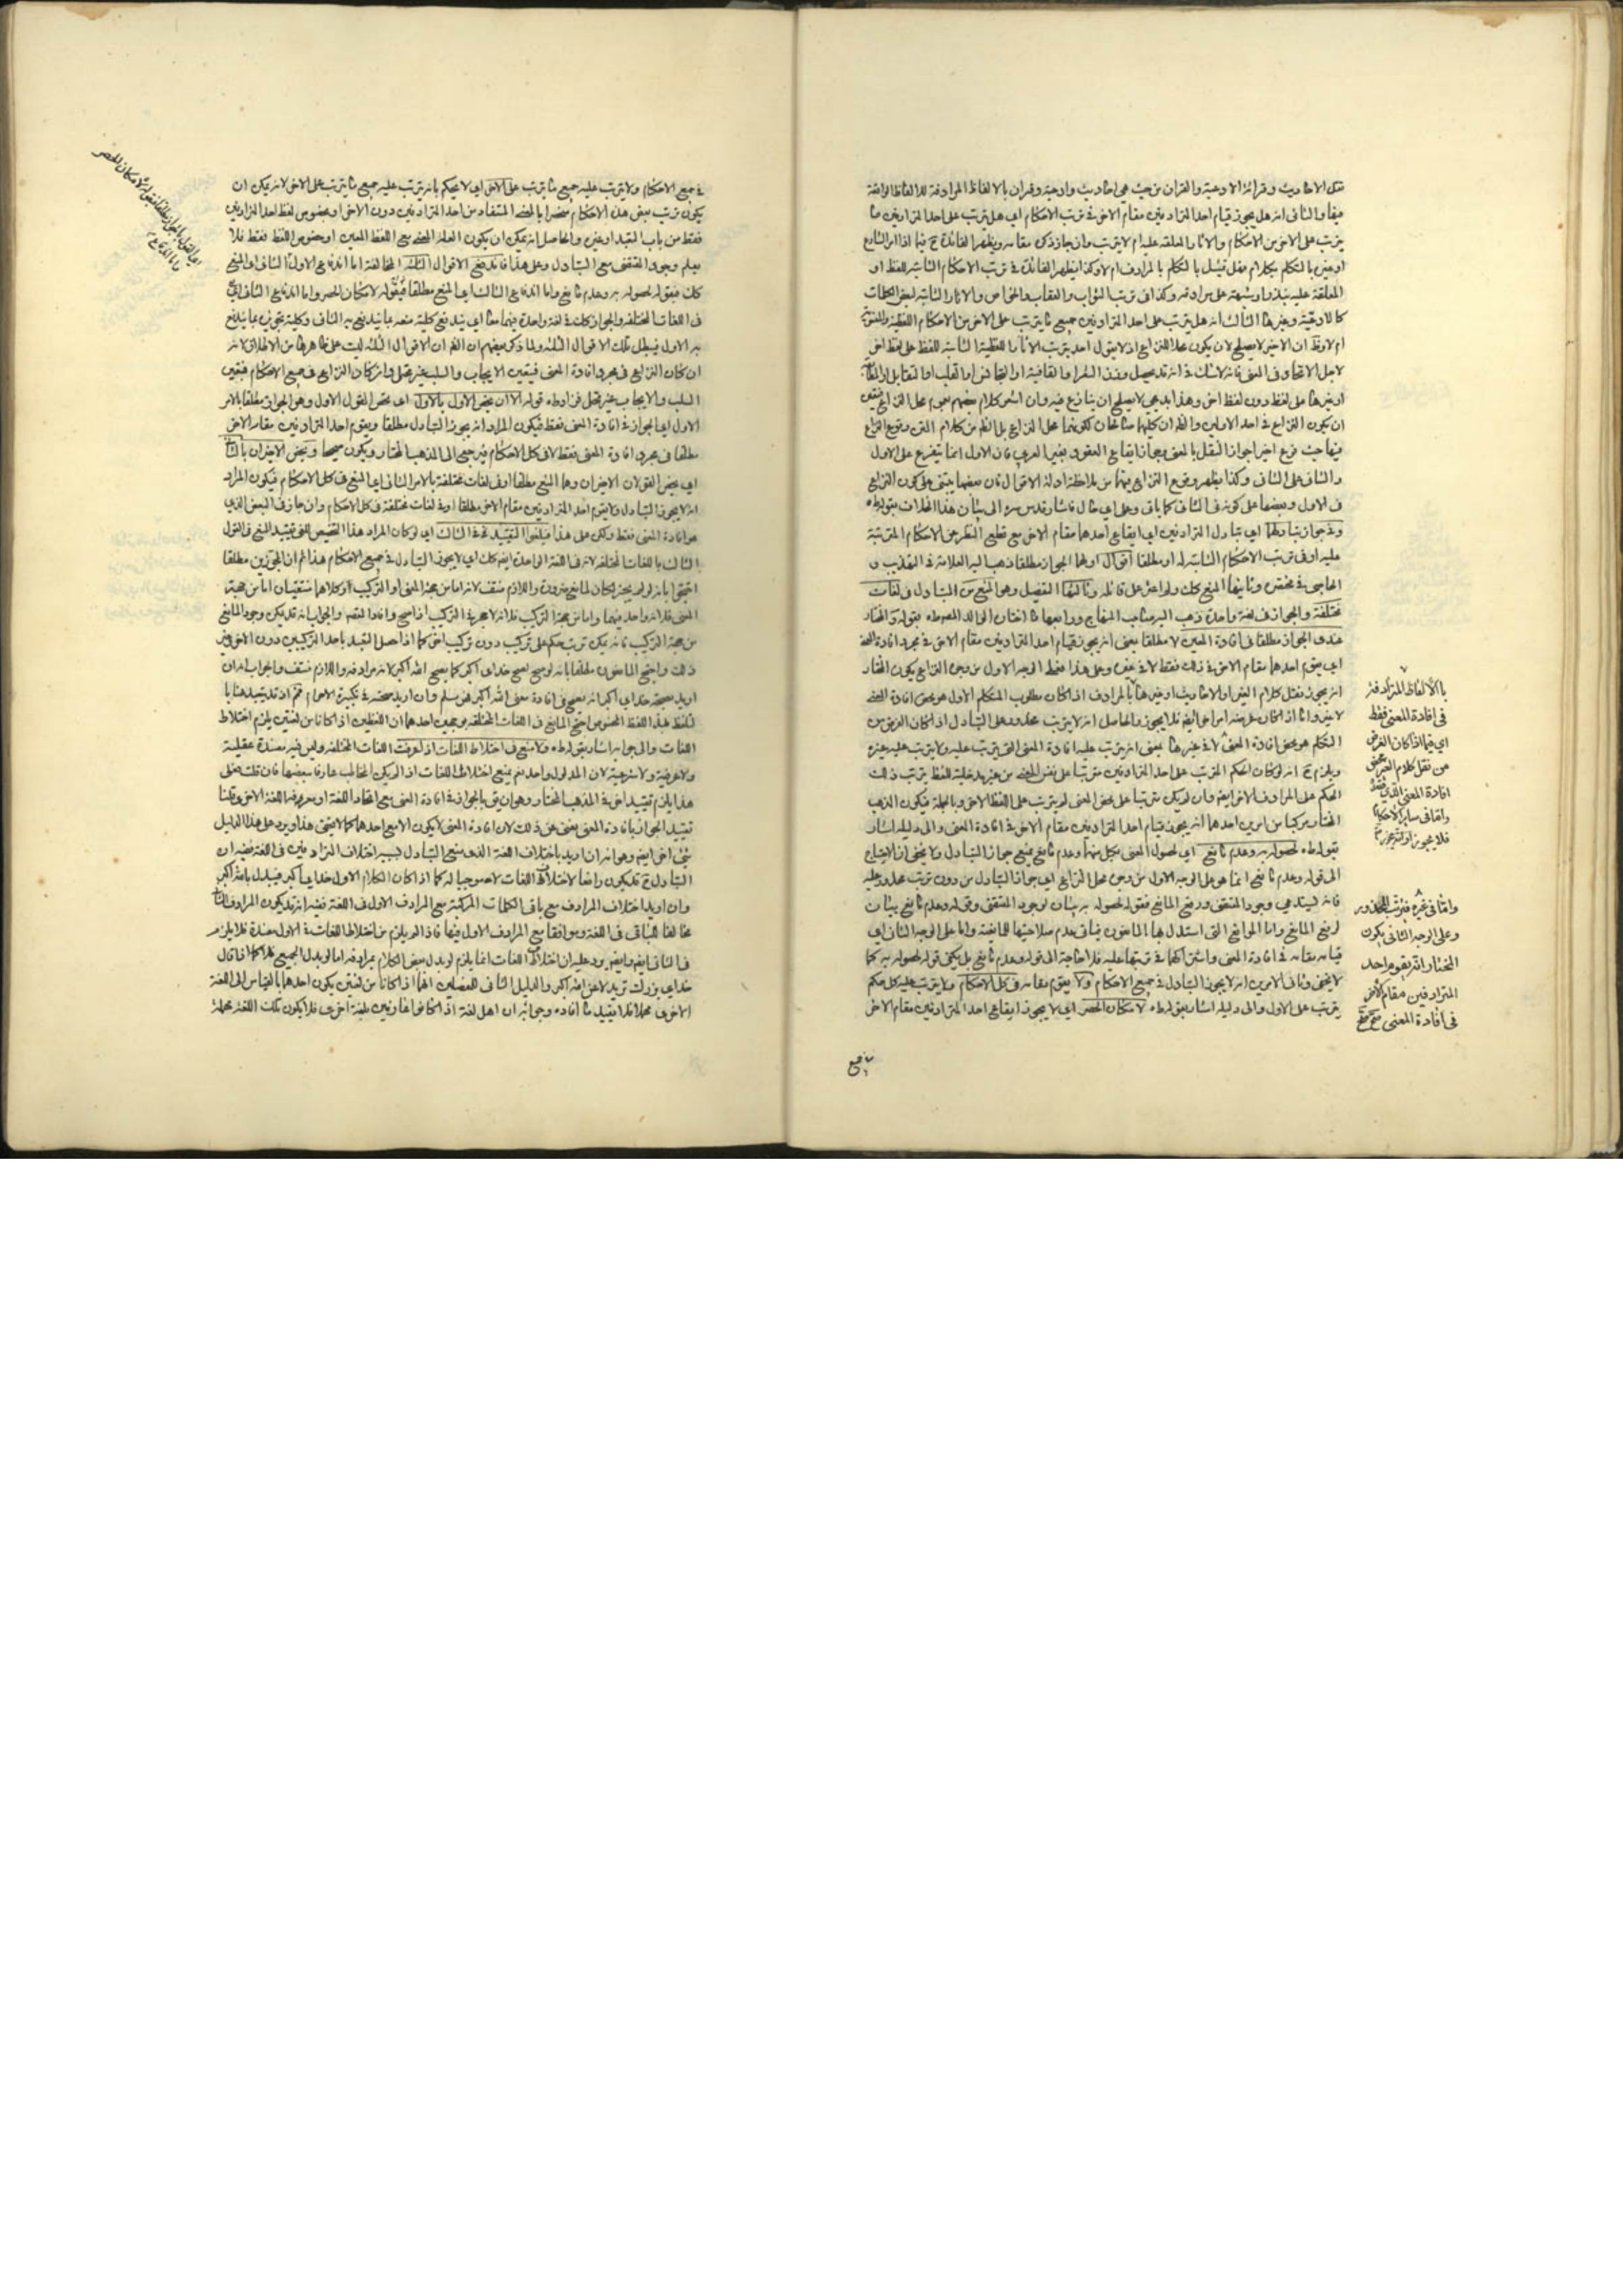 نقل الاحاديث وقرائة الادعية والقران من حيث هي احاديث وادعية وقران بالالفاظ المرادفة للالفاظ الواقعة
فيها والثاني انه هل يجوز قيام احد المترادفين مقام الاخر في ترتب الاحكام اي هل يترتب على احد المترادفين ما
يترتب على الاخر من الاحكام والاثار المعلقة عليه ام لا يترتب وان جاز ذكره مقامه ويظهر الفائدة ح فيما اذا امر الشارع
او غيره بالتكلم بكلام فهل يمتثل بالتكلم بالمرادف ام لا وكذا يظهر الفائدة في ترتب الاحكام الثابتة للفظ او
المعلقة عليه بنذر او شبهه على مرادفه وكذا في ترتب الثواب والعقاب والخواص والاثار الثابتة لبعض الكلمات
كالادعية وغيرها الثالث انه هل يترتب على احد المترادفين جميع ما يترتب على الاخر من الاحكام اللفظية والمعنوية
ام لا
لاجل الاتحاد في المعنى فانه لا شك في انه قد يحصل وزن الشعر او القافية او التجانس او القلب او التقابل
او غيرها على لفظ دون لفظ اخر وهذا بديهي لا يصلح ان ينازع فيه وان اشعر كلام بعضهم بعموم محل النزاع
ان يكون النزاع في احد الاولين والظ ان كليهما صالحان لكونهما محل النزاع بل الظ من كلام القوم وقوع النزاع
فيهما حيث فرع اخير اجواز النقل بالمعنى وجواز ايقاع العقود بغير العربي فان الاول انما يتفرع على الاول
والثاني على الثاني وكذا يظهر وقوع النزاع فيهما من ملاحظة ادلة الاقوال فان بعضها يبتني على كون النزاع
في الاول وبعضها على كونه في الثاني كما ياتي وعلى اي حال فاشار قدس سره الى بيان هذا الخلاف بقوله ره
وفي جواز تبادلهما اي تبادل المترادفين اي ايقاع احدهما مقام الاخر مع قطع النظر عن الاحكام المترتبة
عليه او في ترتب الاحكام الثابتة له او مطلقا اقوال اولها الجواز مطلقا ذهب اليه العلامة في التهذيب و
الحاجبي في مختصره وثانيها المنع كك ولم اعثر على قائله وثالثها التفصيل وهو المنع من التبادل في لغات
مختلفة والجواز في لغة واحدة ذهب اليه صاحب المنهاج ورابعها ما اختاره الوالد المص ره بقوله والمختار
عندي الجواز مطلقا في افادة المعنى لا مطلقا بمعنى انه يجوز قيام احد المترادفين مقام الاخر في مجرد افادة المعنى
اي يقوم احدهما مقام الاخر في ذلك فقط لا في غيره وعلى هذا فعلى الوجه الاول من وجهي النزاع يكون المختار
انه يجوز نقل كلام الغير او الاحاديث او غيرهما بالمرادف اذا كان مطلوب المتكلم الاول هو محض افادة المعنى
لا غير واما اذا كان غرضه امرا اخر ايضا فلا يجوز والحاصل انه لا يترتب محذور على التبادل اذا كان الغرض من
التكلم هو محض افادة المعنى لا في غيرها بمعنى انه يترتب عليه افادة المعنى التي يترتب عليه ولا يترتب عليه غيره
ويلزم ح انه لو كان الحكم المترتب على احد المترادفين مترتبا على نفس المعنى من غير مدخلية للفظ يترتب ذلك
الحكم على المرادف الاخر ايضا وان لم يكن مترتبا على محض المعنى لم يترتب على اللفظ الاخر وبالجملة فيكون المذهب
المختار مركبا من امرين احدهما انه يجوز قيام احد المترادفين مقام الاخر في افادة المعنى والى دليله اشار
بقوله ره لحصوله به وعدم مانع اي لحصول المعنى بكل منهما وعدم مانع يمنع جواز التبادل ولا يخفى ان الاحتياج
الى قوله وعدم مانع انما هو على الوجه الاول من وجهي محل النزاع اي جواز التبادل من دون ترتب محذور عليه
فانه يستدعي وجود المقتضي ورفع المانع فقوله لحصوله به بيان لوجود المقتضي وقوله وعدم مانع بيان
لرفع المانع واما الموانع التي استدل بها المانعون فياتي عدم صلاحيتها للمانعية واما على الوجه الثاني اي
قيامه مقامه في افادة المعنى واشتراكهما في ترتبها عليه فلا حاجة الى قوله وعدم مانع بل يكفي قوله لحصوله به كما
لا يخفى وثاني الامرين انه لا يجوز التبادل في جميع الاحكام ولا يقوم مقامه في كل الاحكام ولا يترتب عليه كل حكم
يترتب على الاول والى دليله اشار بقوله ره لامكان الحصر اي لا يجوز ايقاع احد المترادفين مقام الاخر
بالالفاظ المترادفة
في افادة المعنى فقط
اي فيما اذا كان الغرض
من نقل كلام الغير محض
افادة المعنى الذي قصده
واما في ساير الاحكام
فلا يجوز
واما في غيره فيترتب المحذور
وعلى الوجه الثاني يكون
المختار انه يقوم احد
المترادفين مقام الاخر
في افادة المعنى
في جميع الاحكام ولا يترتب عليه جميع ما يترتب على الاخر اي لا يحكم بانه يترتب عليه جميع ما يترتب على الاخر لانه يمكن ان
يكون ترتب بعض هذه الاحكام منحصرا بالمعنى المستفاد من احد المترادفين دون الاخر او بخصوص لفظ احد المترادفين
فقط من باب التعبد او غيره والحاصل انه يمكن ان يكون العلة المعنى مع اللفظ المعين او خصوص اللفظ فقط فلا
يعلم وجود المقتضي مع التبادل وعلى هذا فاندفع الاقوال الثلثة المخالفة اما اندفاع الاول والثاني اي المنع
كك فبقوله لحصوله به وعدم مانع واما اندفاع الثالث اي المنع مطلقا فبقوله لامكان الحصر واما اندفاع الثاني اي
في اللغات المختلفة والجواز كك في لغة واحدة فبهما معا اي يندفع كلية منعه بما يندفع به الثاني وكلية تجويزه بما يندفع
به الاول فيبطل تلك الاقوال الثلثة ولما ذكر بعضهم ان الظ ان الاقوال الثلثة ليست على ظاهرها من الاطلاق لانه
ان كان النزاع في مجرد افادة المعنى فيتعين الايجاب والسلب غير محتمل وان كان النزاع في جميع الاحكام فيتعين
السلب والايجاب غير محتمل فزاد ره قوله الا ان يخص الاول بالاول اي يخص القول الاول وهو الجواز مطلقا بالامر
الاول اي الجواز في افادة المعنى فقط فيكون المراد انه يجوز التبادل مطلقا ويقوم احد المترادفين مقام الاخر
مطلقا في مجرد افادة المعنى فقط لا في كل الاحكام فيرجع الى المذهب المختار ويكون صحيحا ويخص الاخيران بالثاني
اي يخص القولان الاخيران وهما المنع مطلقا او في لغات مختلفة بالامر الثاني اي المنع في كل الاحكام فيكون المراد
انه لا يجوز التبادل ولا يقوم احد المترادفين مقام الاخر مطلقا او في لغات مختلفة في كل الاحكام وان جاز في البعض الذي
هو افادة المعنى فقط ولكن على هذا فيلغو التقييد في الثالث اي لو كان المراد هذا التخصيص للغى تقييد المنع في القول
الثالث باللغات المختلفة لانه في اللغة الواحدة ايضا كك اي لا يجوز التبادل في جميع الاحكام هذا ثم ان المجوزين مطلقا
احتجوا بانه لو لم يجز لكان لمانع ضرورة واللازم منتف لانه اما من جهة المعنى او التركيب وكلاهما منتفيان اما من جهة
المعنى فلانه واحد فيهما واما من جهة التركيب فلانه لا حجر في التركيب اذا صح وافاد المقصود والجواب انه قد يكون وجود المانع
من جهة التركيب فانه يمكن ترتب حكم على تركيب دون تركيب اخر كما اذا حصل التعبد باحد التركيبين دون الاخر وغير
ذلك واحتج المانعون مطلقا بانه لو صح لصح خداي اكبر كما يصح الله اكبر لانه مرادفه واللازم منتف والجواب انه ان
اريد بصحة خداي اكبر انه يصح في افادة معنى الله اكبر فهو مسلم وان اريد صحته في تكبيرة الاحرام فمم اذ قد تعبدنا هنا
بلفظ هذا اللفظ المخصوص احتج المانع في اللغات المختلفة بوجهين احدهما ان اللفظين اذا كانا من لغتين يلزم اختلاط
اللغات والى جوابه اشار بقوله ره ولا منع في اختلاط اللغات اذا عرفت اللغات المختلفة وليس فيه مفسدة عقلية
ولا عرفية ولا شرعية لان المدلول واحد نعم يمنع اختلاط اللغات اذا لم يكن المخاطب عارفا ببعضها فان قلت فعلى
هذا يلزم تقييد اخر في المذهب المختار وهو ان يق بالجواز في افادة المعنى مع اتحاد اللغة او معرفة اللغة الاخرى قلنا
تقييد الجواز بافادة المعنى يغني عن ذلك لان افادة المعنى لا يكون الا مع احدهما كما لا يخفى هذا ويرد على هذا الدليل
شيء اخر ايضا وهو انه ان اريد باختلاف اللغة الذي منع التبادل لسببه اختلاف المترادفين في اللغة ففيه ان
التبادل ح قد يكون رافعا لاختلاط اللغات لا موجبا له كما اذا كان الكلام الاول خداي اكبر فيبدل بالله اكبر
وان اريد اختلاف المرادف مع باقي الكلمات المركبة مع المرادف الاول في اللغة ففيه انه قد يكون المرادف الثاني
مخالفا للباقي في اللغة وموافقا مع المرادف الاول فيها فاذا لم يلزم من اختلاط اللغات في الاول مفسدة فلا يلزم
في الثاني ايضا وايضا يرد عليه ان اختلاط اللغات انما يلزم لو بدل بعض الكلام بمرادفه اما لو بدل الجميع فلا كما اذا قال
خداي بزرگ تر بدلا عن الله اكبر والدليل الثاني للمفصلين انهما اذا كانا من لغتين يكون احدهما بالقياس الى اللغة
الاخرى مهملا فلا يفيد ما افاده وجوابه ان اهل لغة اذا كانوا عارفين بلغة اخرى فلا يكون تلك اللغة مهملة